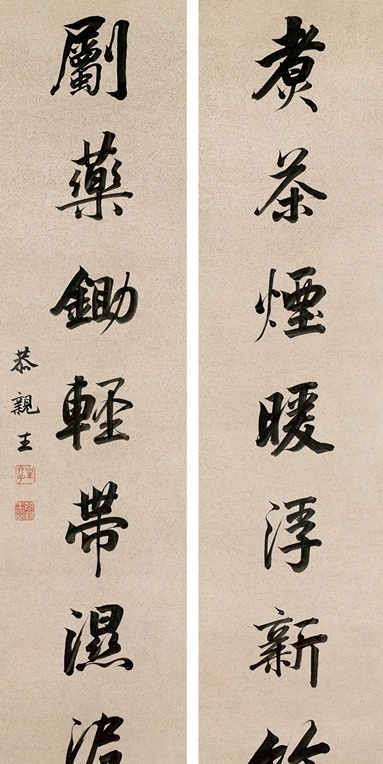 煮茶煙暖浮新
劚藥鋤輕帶濕
恭親王